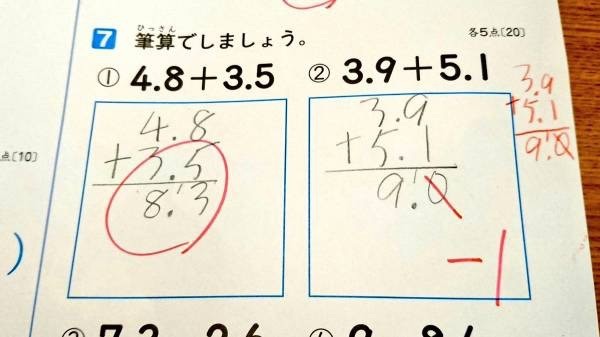 ひっさん
7 筆算でしましょう。 各5点〔20〕
① 4.8+3.5 ② 3.9+5.1
4.8
+3.5
8.3
3.9
+5.1
9.0
-1
3.9
+5.1
9.0
点〔10〕
)